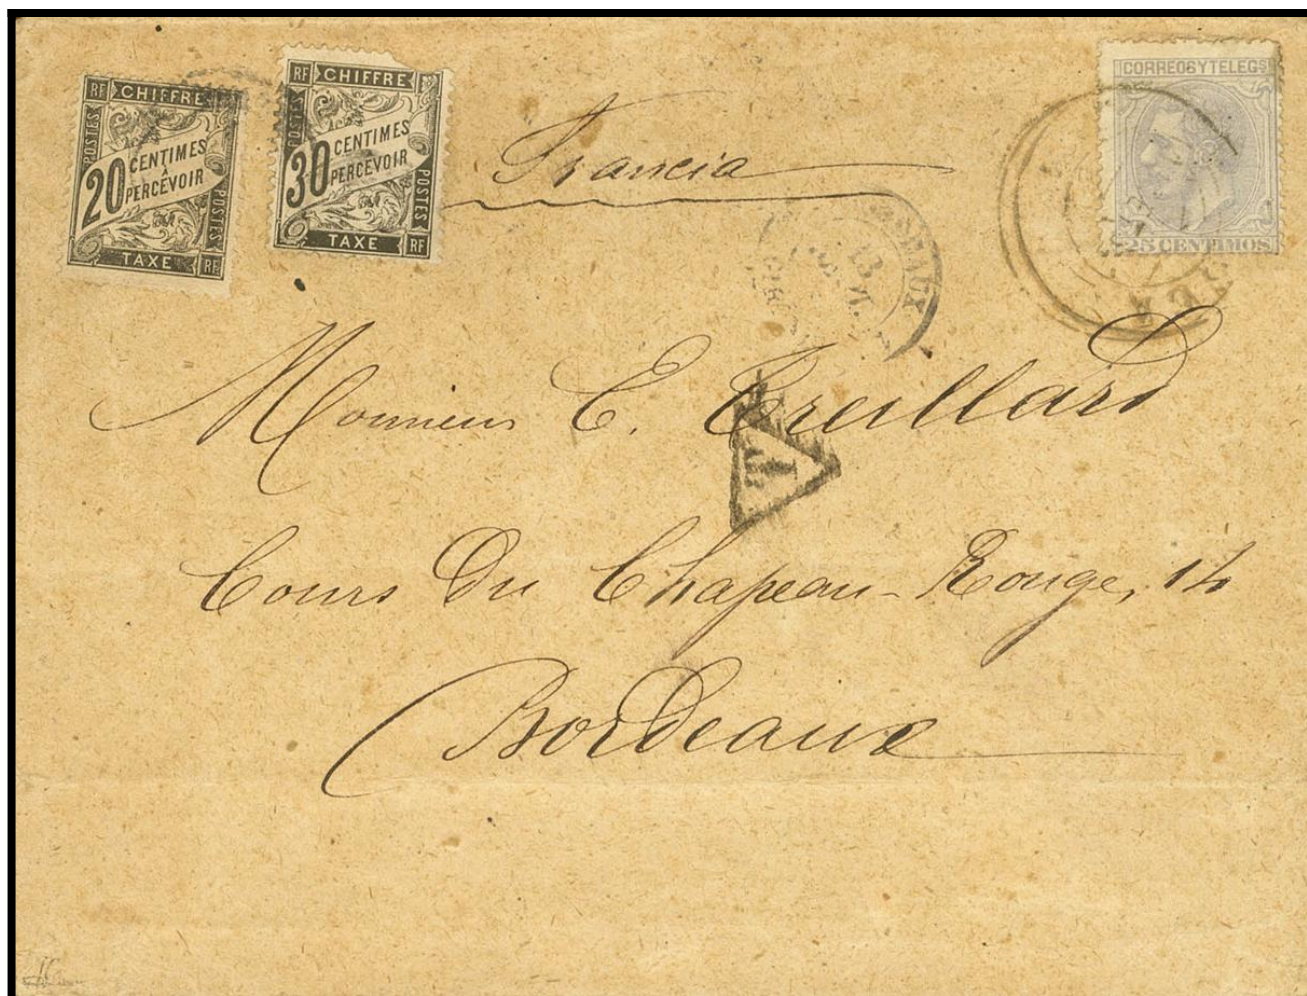 RF CHIFFRE
POSTES
20 CENTIMES
À
PERCEVOIR
POSTES
TAXE RF
RF CHIFFRE
POSTES
30 CENTIMES
À
PERCEVOIR
POSTES
TAXE RF
Francia
CORREOS Y TELEGS
25 CENTIMOS
13
Monsieur E. Treillard
T
Cours Du Chapeau-Rouge, 14
Bordeaux